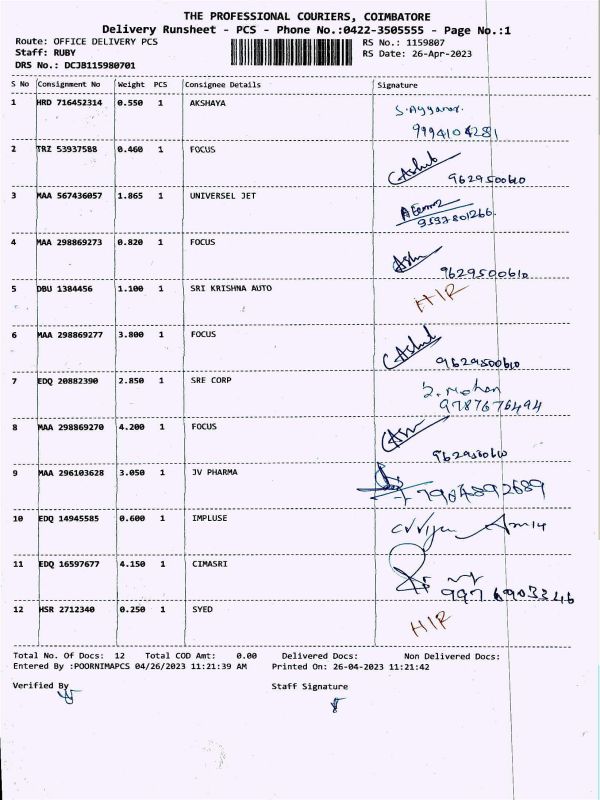 THE PROFESSIONAL COURIERS, COIMBATORE
Delivery Runsheet - PCS - Phone No.:0422-3505555 - Page No.:1
Route: OFFICE DELIVERY PCS RS No.: 1159807
Staff: RUBY RS Date: 26-Apr-2023
DRS No.: DCJB115980701
S No Consignment No Weight PCS Consignee Details Signature
1 HRD 716452314 0.550 1 AKSHAYA
9994104281
2 TRZ 53937588 0.460 1 FOCUS
9629500610
3 MAA 567436057 1.865 1 UNIVERSEL JET
9597801266.
4 MAA 298869273 0.820 1 FOCUS
9629500610
5 DBU 1384456 1.100 1 SRI KRISHNA AUTO H/R
6 MAA 298869277 3.800 1 FOCUS
9629500610
7 EDQ 20882390 2.850 1 SRE CORP Mohan
9787676494
8 MAA 298869270 4.200 1 FOCUS
9629500610
9 MAA 296103628 3.050 1 JV PHARMA
7904892689
10 EDQ 14945585 0.600 1 IMPLUSE
11 EDQ 16597677 4.150 1 CIMASRI
9976903346
12 HSR 2712340 0.250 1 SYED H/R
Total No. Of Docs: 12 Total COD Amt: 0.00 Delivered Docs: Non Delivered Docs:
Entered By :POORNIMAPCS 04/26/2023 11:21:39 AM Printed On: 26-04-2023 11:21:42
Verified By Staff Signature